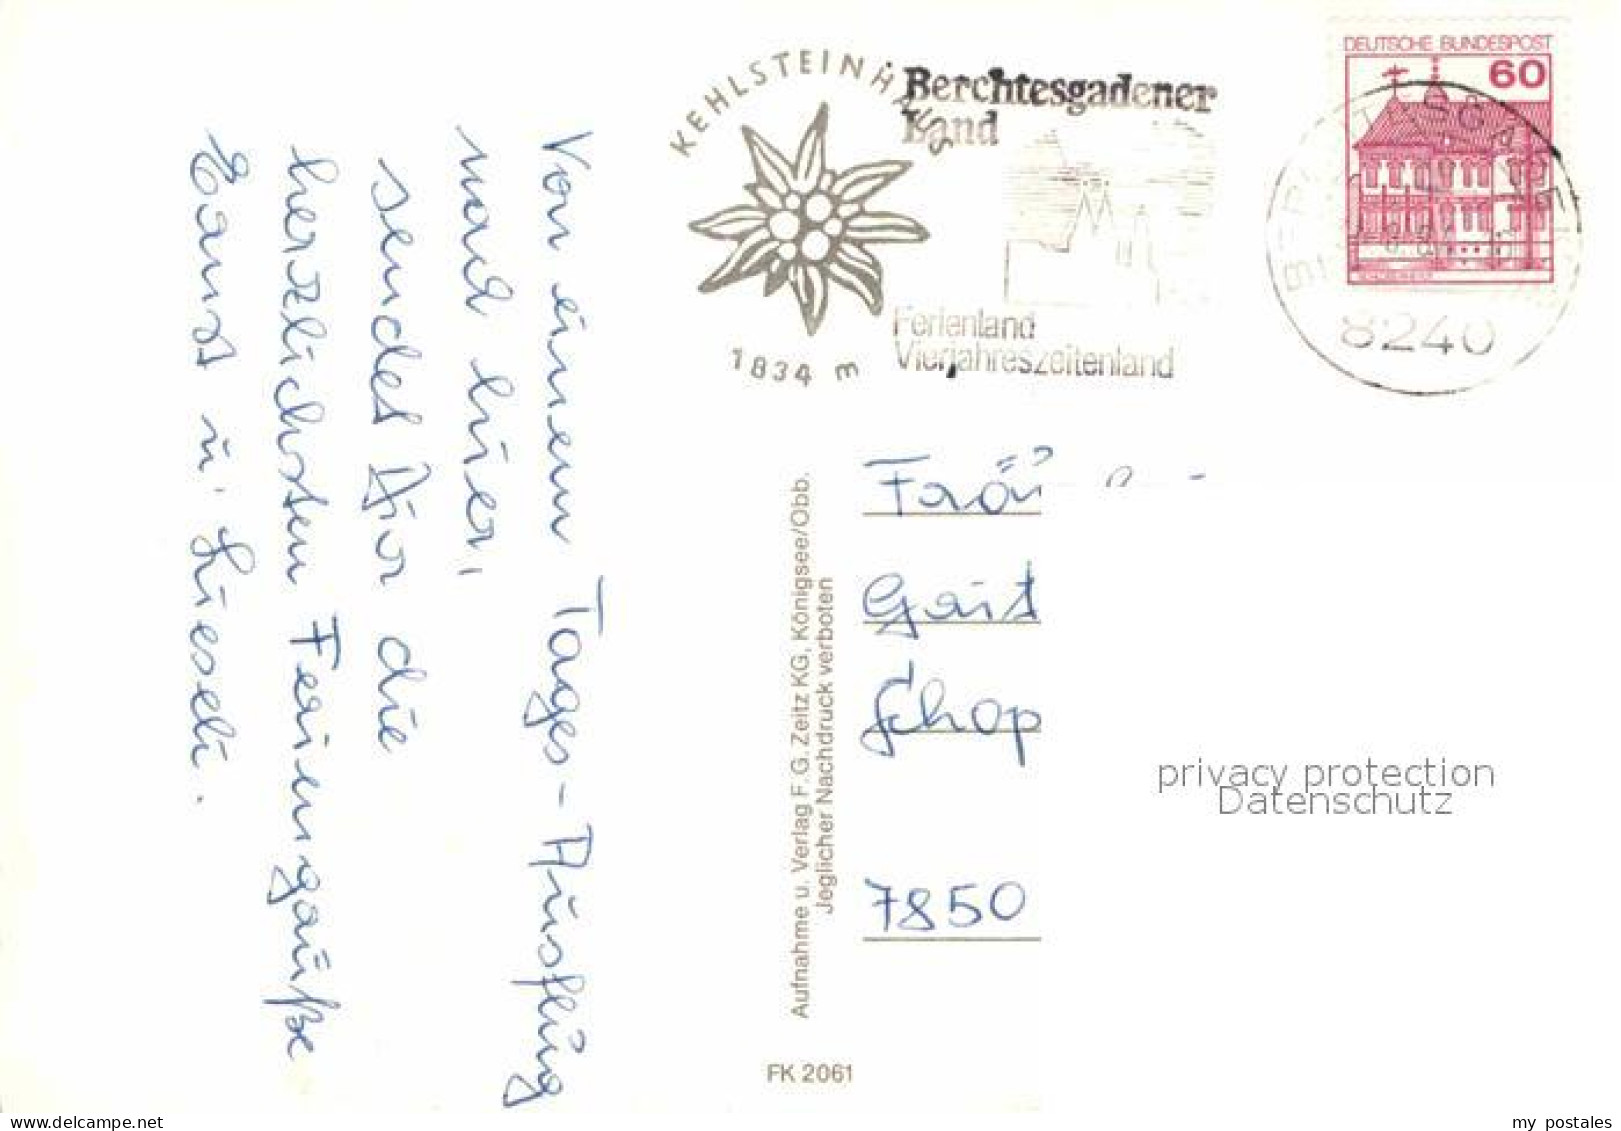 KEHLSTEINHAUS
1834 m
Berchtesgadener
Land
Ferienland
Vierjahreszeitenland
DEUTSCHE BUNDESPOST
60
8240
Von einem Tages-Ausflug
nach hier,
sendet Dir die
herzlichsten Feriengrüße
Ernst u. Liesel.
Aufnahme u. Verlag F. G. Zeitz KG, Königsee/Obb.
Jeglicher Nachdruck verboten
FK 2061
Schop
7850
privacy protection
Datenschutz
my postales